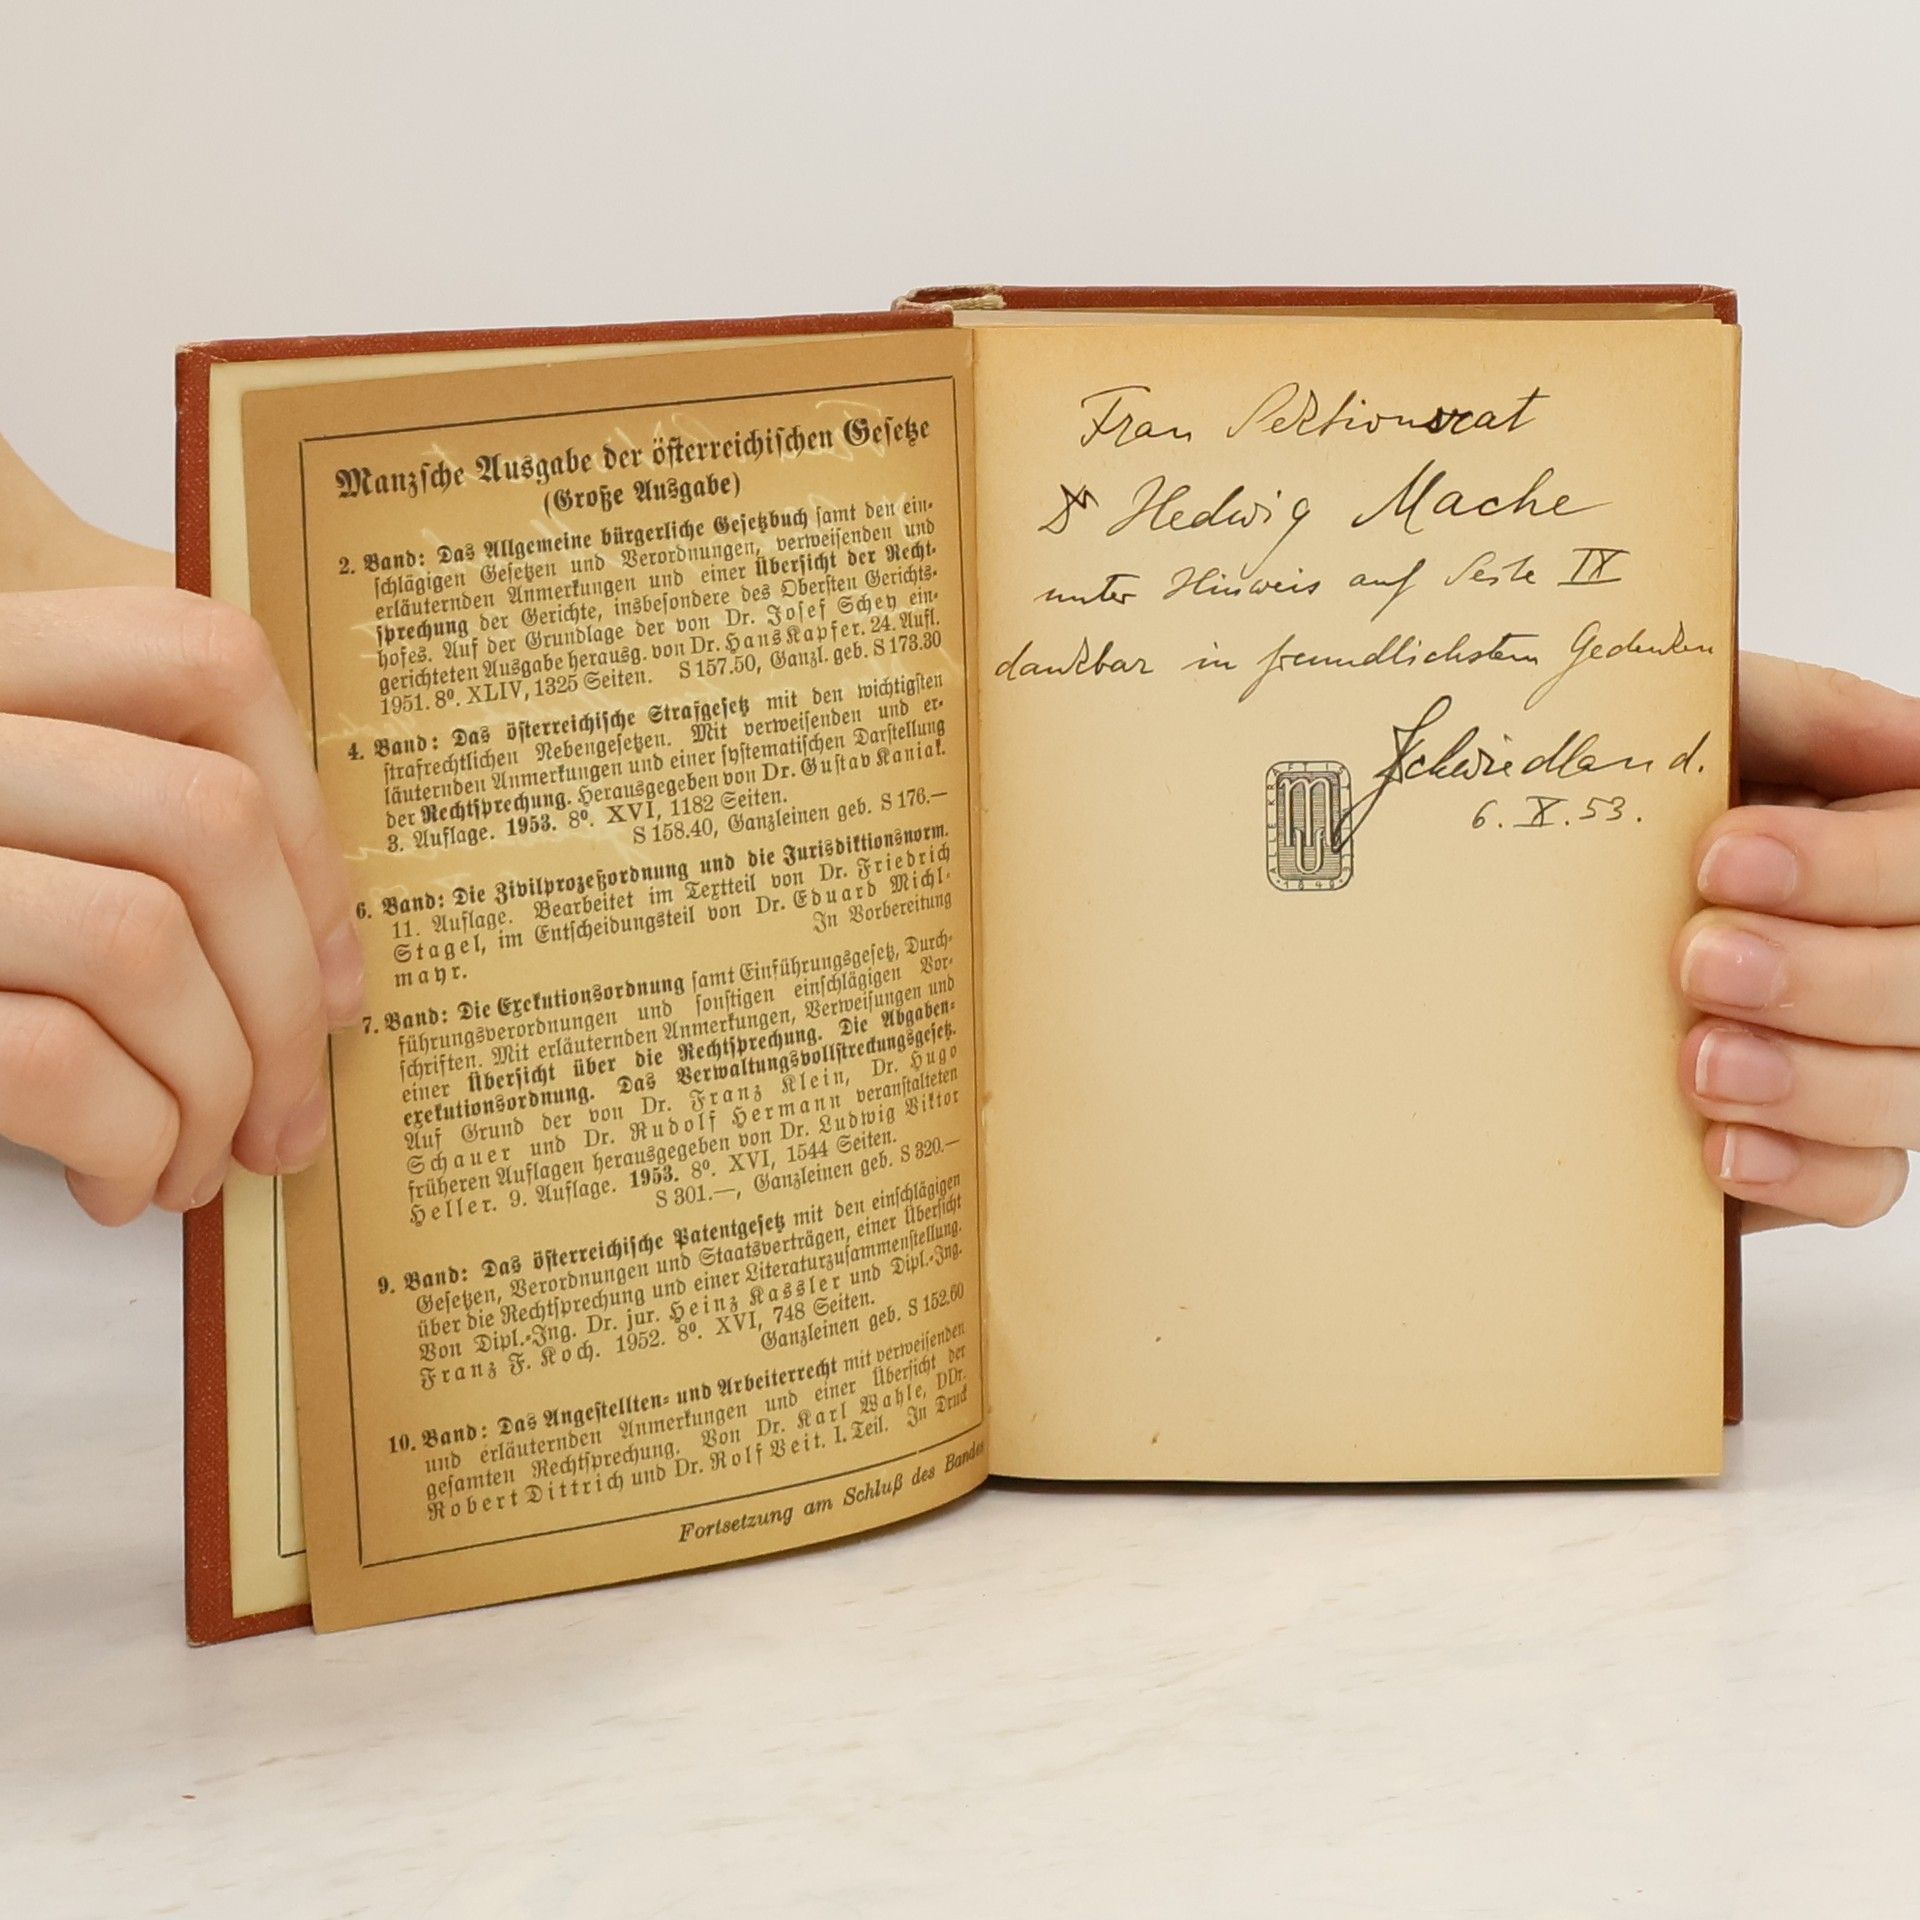 Manzsche Ausgabe der österreichischen Gesetze
(Große Ausgabe)
2. Band: Das Allgemeine bürgerliche Gesetzbuch samt den ein-
schlägigen Gesetzen und Verordnungen, verweisenden und
erläuternden Anmerkungen und einer Übersicht der Recht-
sprechung der Gerichte, insbesondere des Obersten Gerichts-
hofes. Auf der Grundlage der von Dr. Josef Schey ein-
gerichteten Ausgabe herausg. von Dr. Hans Kapfer. 24. Aufl.
1951. 8º. XLIV, 1325 Seiten. S 157.50, Ganzl. geb. S 173.30
4. Band: Das österreichische Strafgesetz mit den wichtigsten
strafrechtlichen Nebengesetzen. Mit verweisenden und er-
läuternden Anmerkungen und einer systematischen Darstellung
der Rechtsprechung. Herausgegeben von Dr. Gustav Kaniak.
3. Auflage. 1953. 8º. XVI, 1182 Seiten.
S 158.40, Ganzleinen geb. S 176.—
6. Band: Die Zivilprozeßordnung und die Jurisdiktionsnorm.
11. Auflage. Bearbeitet im Textteil von Dr. Friedrich
Stagel, im Entscheidungsteil von Dr. Eduard Michl-
mayr. In Vorbereitung
7. Band: Die Exekutionsordnung samt Einführungsgesetz, Durch-
führungsverordnungen und sonstigen einschlägigen Vor-
schriften. Mit erläuternden Anmerkungen, Verweisungen und
einer Übersicht über die Rechtsprechung. Die Abgaben-
exekutionsordnung. Das Verwaltungsvollstreckungsgesetz.
Auf Grund der von Dr. Franz Klein, Dr. Hugo
Schauer und Dr. Rudolf Hermann veranstalteten
früheren Auflagen herausgegeben von Dr. Ludwig Viktor
Heller. 9. Auflage. 1953. 8º. XVI, 1544 Seiten.
S 301.—, Ganzleinen geb. S 320.—
9. Band: Das österreichische Patentgesetz mit den einschlägigen
Gesetzen, Verordnungen und Staatsverträgen, einer Übersicht
über die Rechtsprechung und einer Literaturzusammenstellung.
Von Dipl.-Ing. Dr. jur. Heinz Kassler und Dipl.-Ing.
Franz F. Koch. 1952. 8º. XVI, 748 Seiten.
Ganzleinen geb. S 152.60
10. Band: Das Angestellten- und Arbeiterrecht mit verweisenden
und erläuternden Anmerkungen und einer Übersicht der
gesamten Rechtsprechung. Von Dr. Karl Wahle, DDr.
Robert Dittrich und Dr. Rolf Veit. I. Teil. In Druck
Fortsetzung am Schluß des Bandes
Frau Sektionsrat
Dr Hedwig Mache
unter Hinweis auf Seite IX
dankbar in freundlichstem Gedenken
Schwiedland.
6. X. 53.